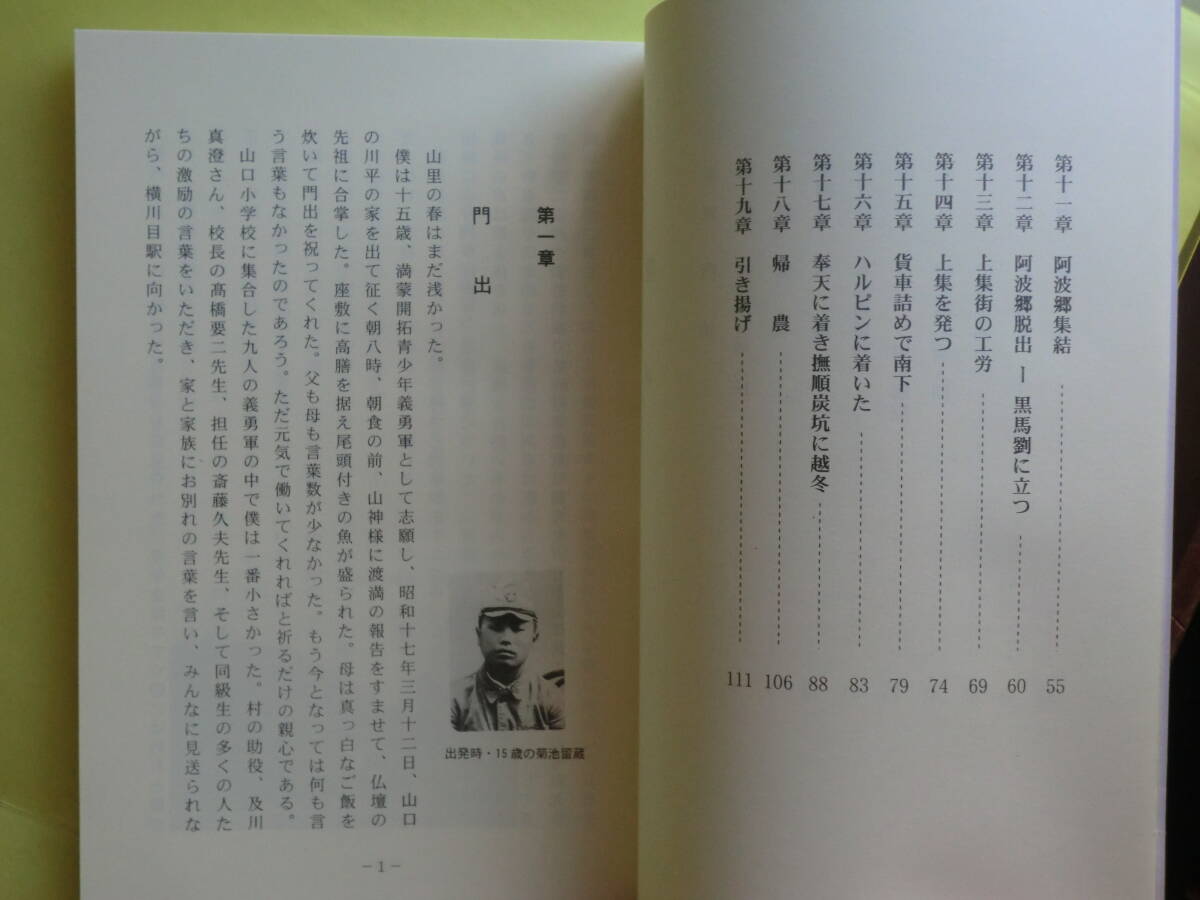 第十一章 阿波郷集結 55
第十二章 阿波郷脱出 ー 黒馬劉に立つ 60
第十三章 上集街の工労 69
第十四章 上集を発つ 74
第十五章 貨車詰めで南下 79
第十六章 ハルピンに着いた 83
第十七章 奉天に着き撫順炭坑に越冬 88
第十八章 帰農 106
第十九章 引き揚げ 111
第一章
門出
山里の春はまだ浅かった。
僕は十五歳、満蒙開拓青少年義勇軍として志願し、昭和十七年三月十二日、山口
の川平の家を出て征く朝八時、朝食の前、山神様に渡満の報告をすませて、仏壇の
先祖に合掌した。座敷に高膳を据え尾頭付きの魚が盛られた。母は真っ白なご飯を
炊いて門出を祝ってくれた。父も母も言葉数が少なかった。もう今となっては何も言
う言葉もなかったのであろう。ただ元気で働いてくれればと祈るだけの親心である。
山口小学校に集合した九人の義勇軍の中で僕は一番小さかった。村の助役、及川
真澄さん、校長の髙橋要二先生、担任の斎藤久夫先生、そして同級生の多くの人た
ちの激励の言葉をいただき、家と家族にお別れの言葉を言い、みんなに見送られな
がら、横川目駅に向かった。
出発時・15歳の菊池留蔵
－1－